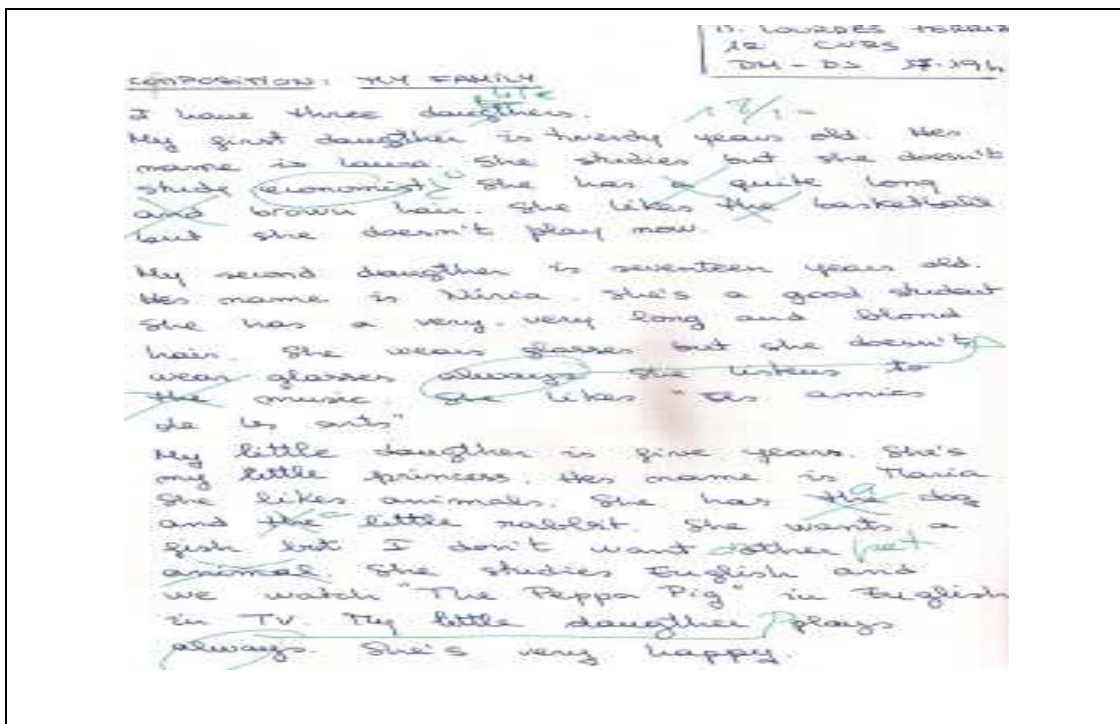 LOURDES
1R CURS
COMPOSITION: MY FAMILY
I have three daugthers.
My first daugther is twenty years old. Her
name is Laura. She studies but she doesn't
study economist. She has a quite long
and brown hair. She likes the basketball
but she doesn't play now.
My second daugther is seventeen years old.
Her name is Núria. She's a good student
She has a very, very long and blond
hair. She wears glasses but she doesn't
wear glasses always She listens to
the music. She likes "Els amics
de les arts"
My little daugther is five years. She's
my little princess. Her name is Maria
She likes animals. She has the a dog
and the a little rabbit. She wants a
fish but I don't want other pet
animal. She studies English and
we watch "The Peppa Pig" in English
in TV. My little daugther plays
always. She's very happy.